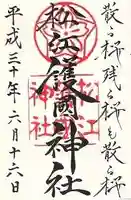 散る桜残る桜も散る桜
松江護國神社
平成三十年六月十六日